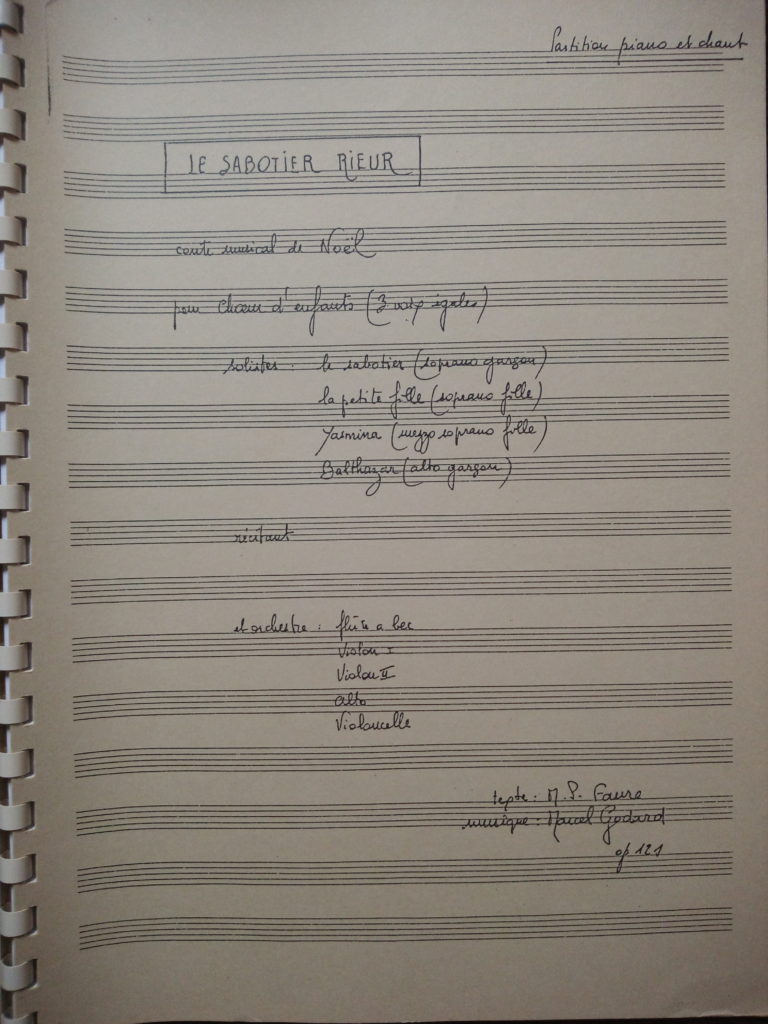 Partition piano et chant
LE SABOTIER RIEUR
conte musical de Noël
pour Chœur d'enfants (3 voix égales)
solistes : le sabotier (soprano garçon)
la petite fille (soprano fille)
Yasmina (mezzo soprano fille)
Balthazar (alto garçon)
récitant
et orchestre : flûte a bec
Violon I
Violon II
alto
Violoncelle
texte : M. P. Faure
musique : Marcel Godard
op 121